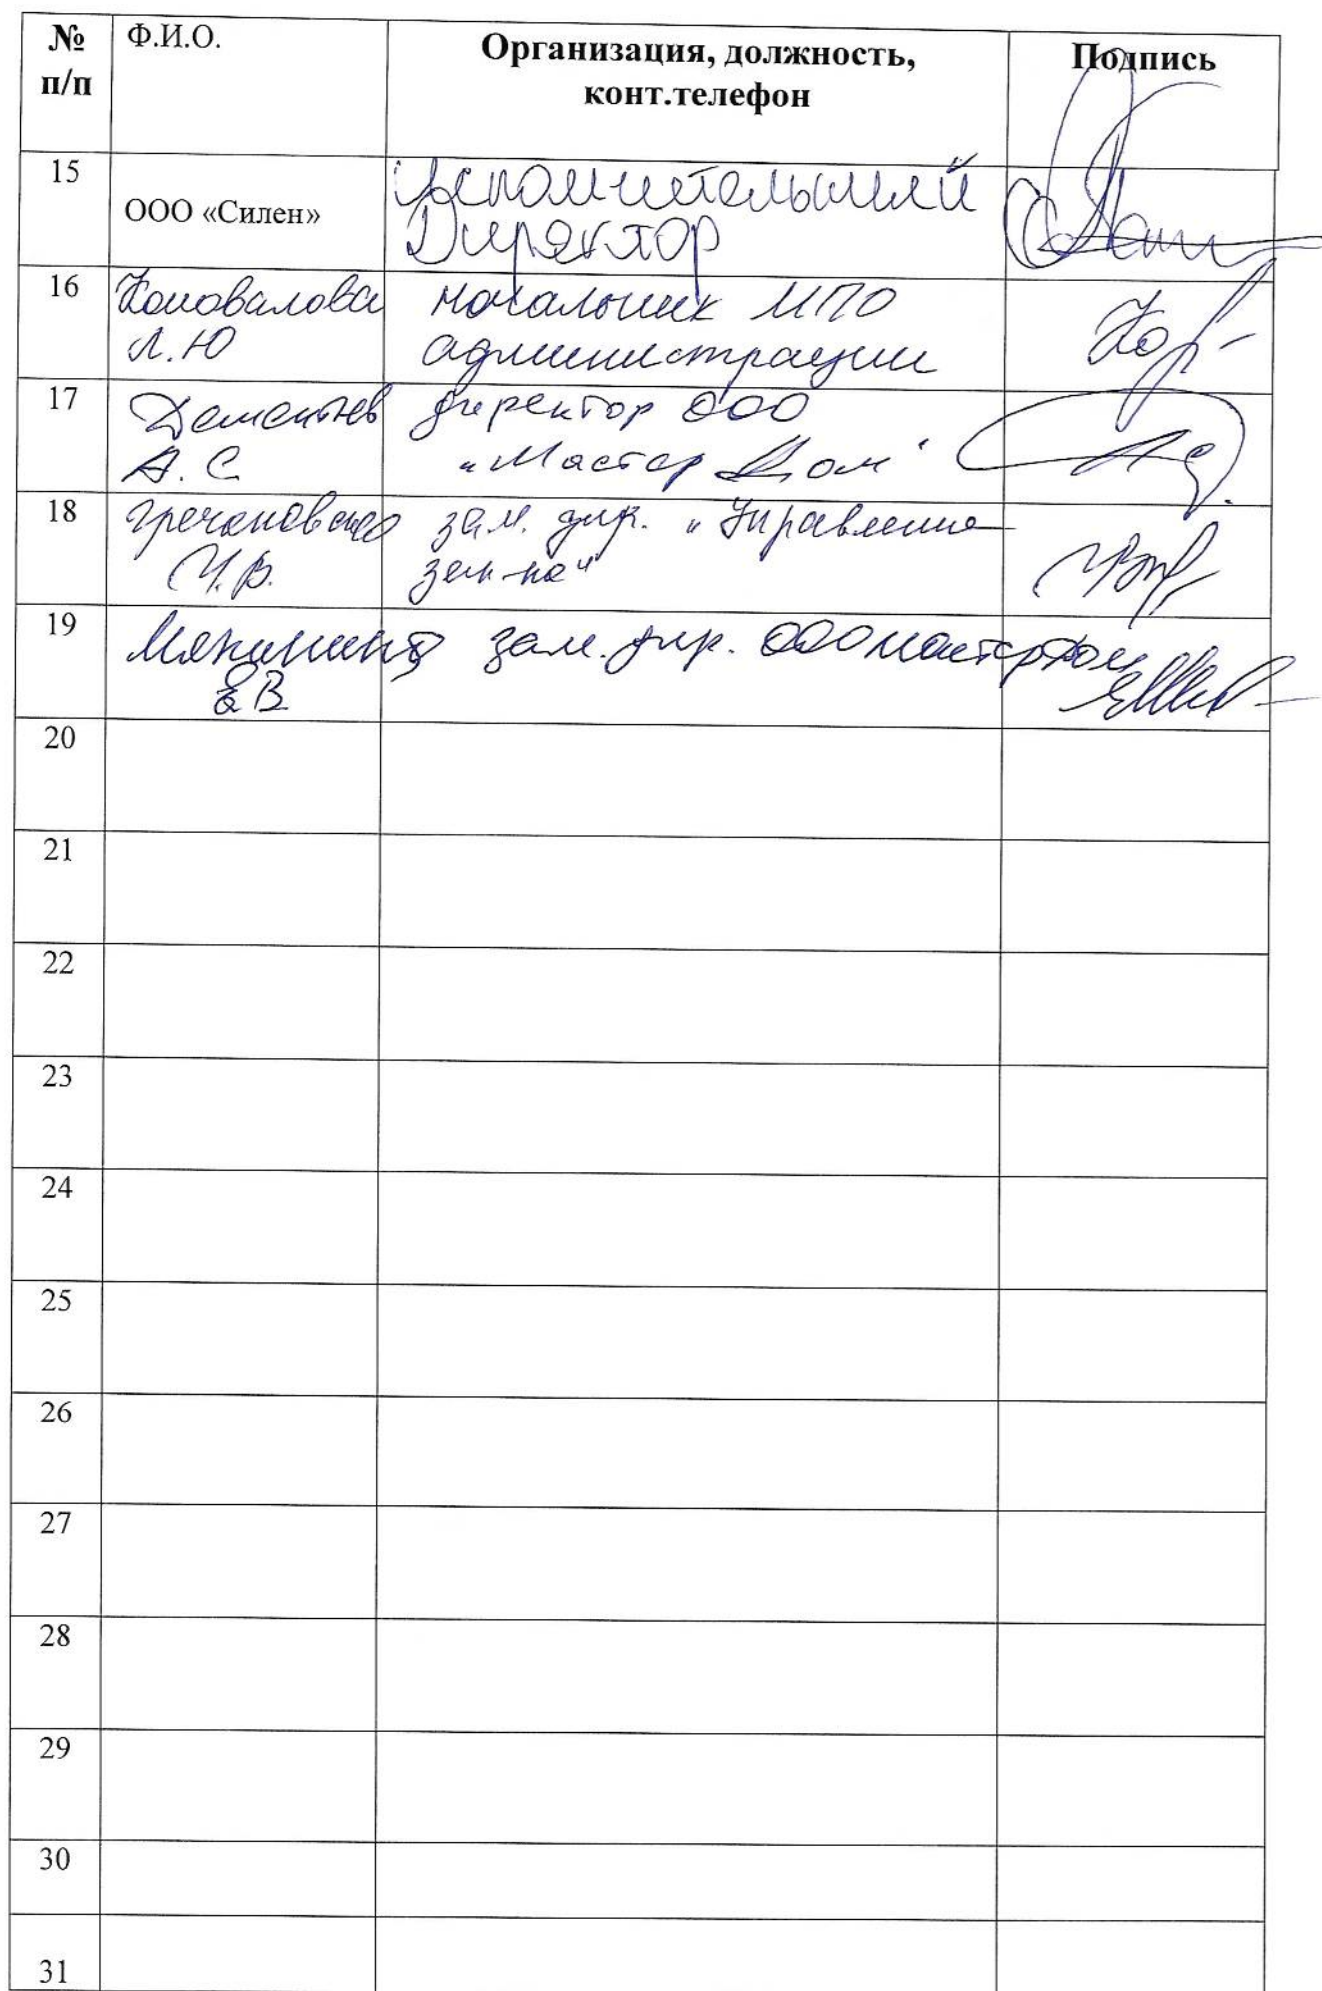 № п/п Ф.И.О. Организация, должность, конт.телефон Подпись
15 ООО «Силен» Исполнительный
Директор
16 Коновалова начальник МПО
Л.Ю администрации
17 Дементьев директор ООО
А.С. "Мастер Дом"
18 зам. дир. "Управление
зем-ка"
19 зам. дир. ООО Мастер Дом
Е В
20
21
22
23
24
25
26
27
28
29
30
31